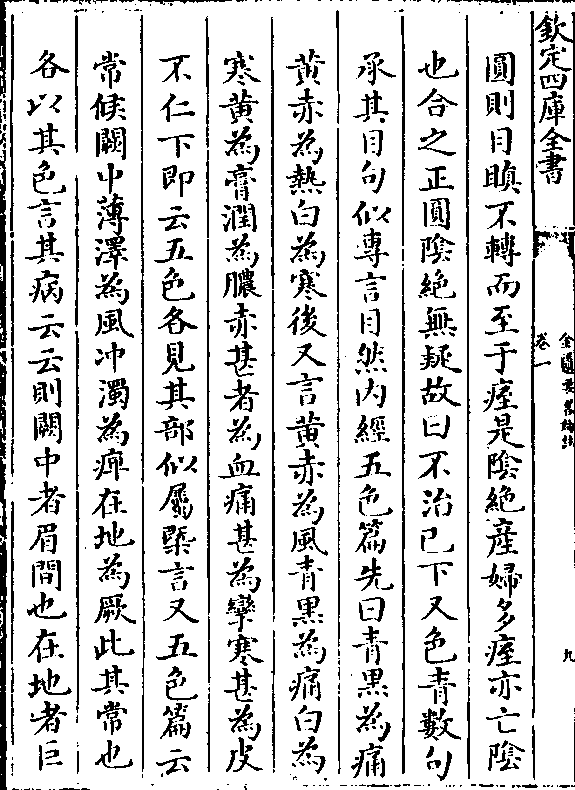 欽定四庫全書
金匱要畧論註
卷一
九
圓則目瞋不轉而至于痙是陰絶産婦多痙亦亡陰
也合之正圓陰絶無疑故曰不治已下又色青數句
承其目句似專言目然内經五色篇先曰青黒為痛
黄赤為熱白為寒後又言黄赤為風青黒為痛白為
寒黄為膏潤為膿赤甚者為血痛甚為攣寒甚為皮
不仁下即云五色各見其部似屬槩言又五色篇云
常候闕中薄澤為風冲濁為痺在地為厥此其常也
各以其色言其病云云則闕中者眉間也在地者巨